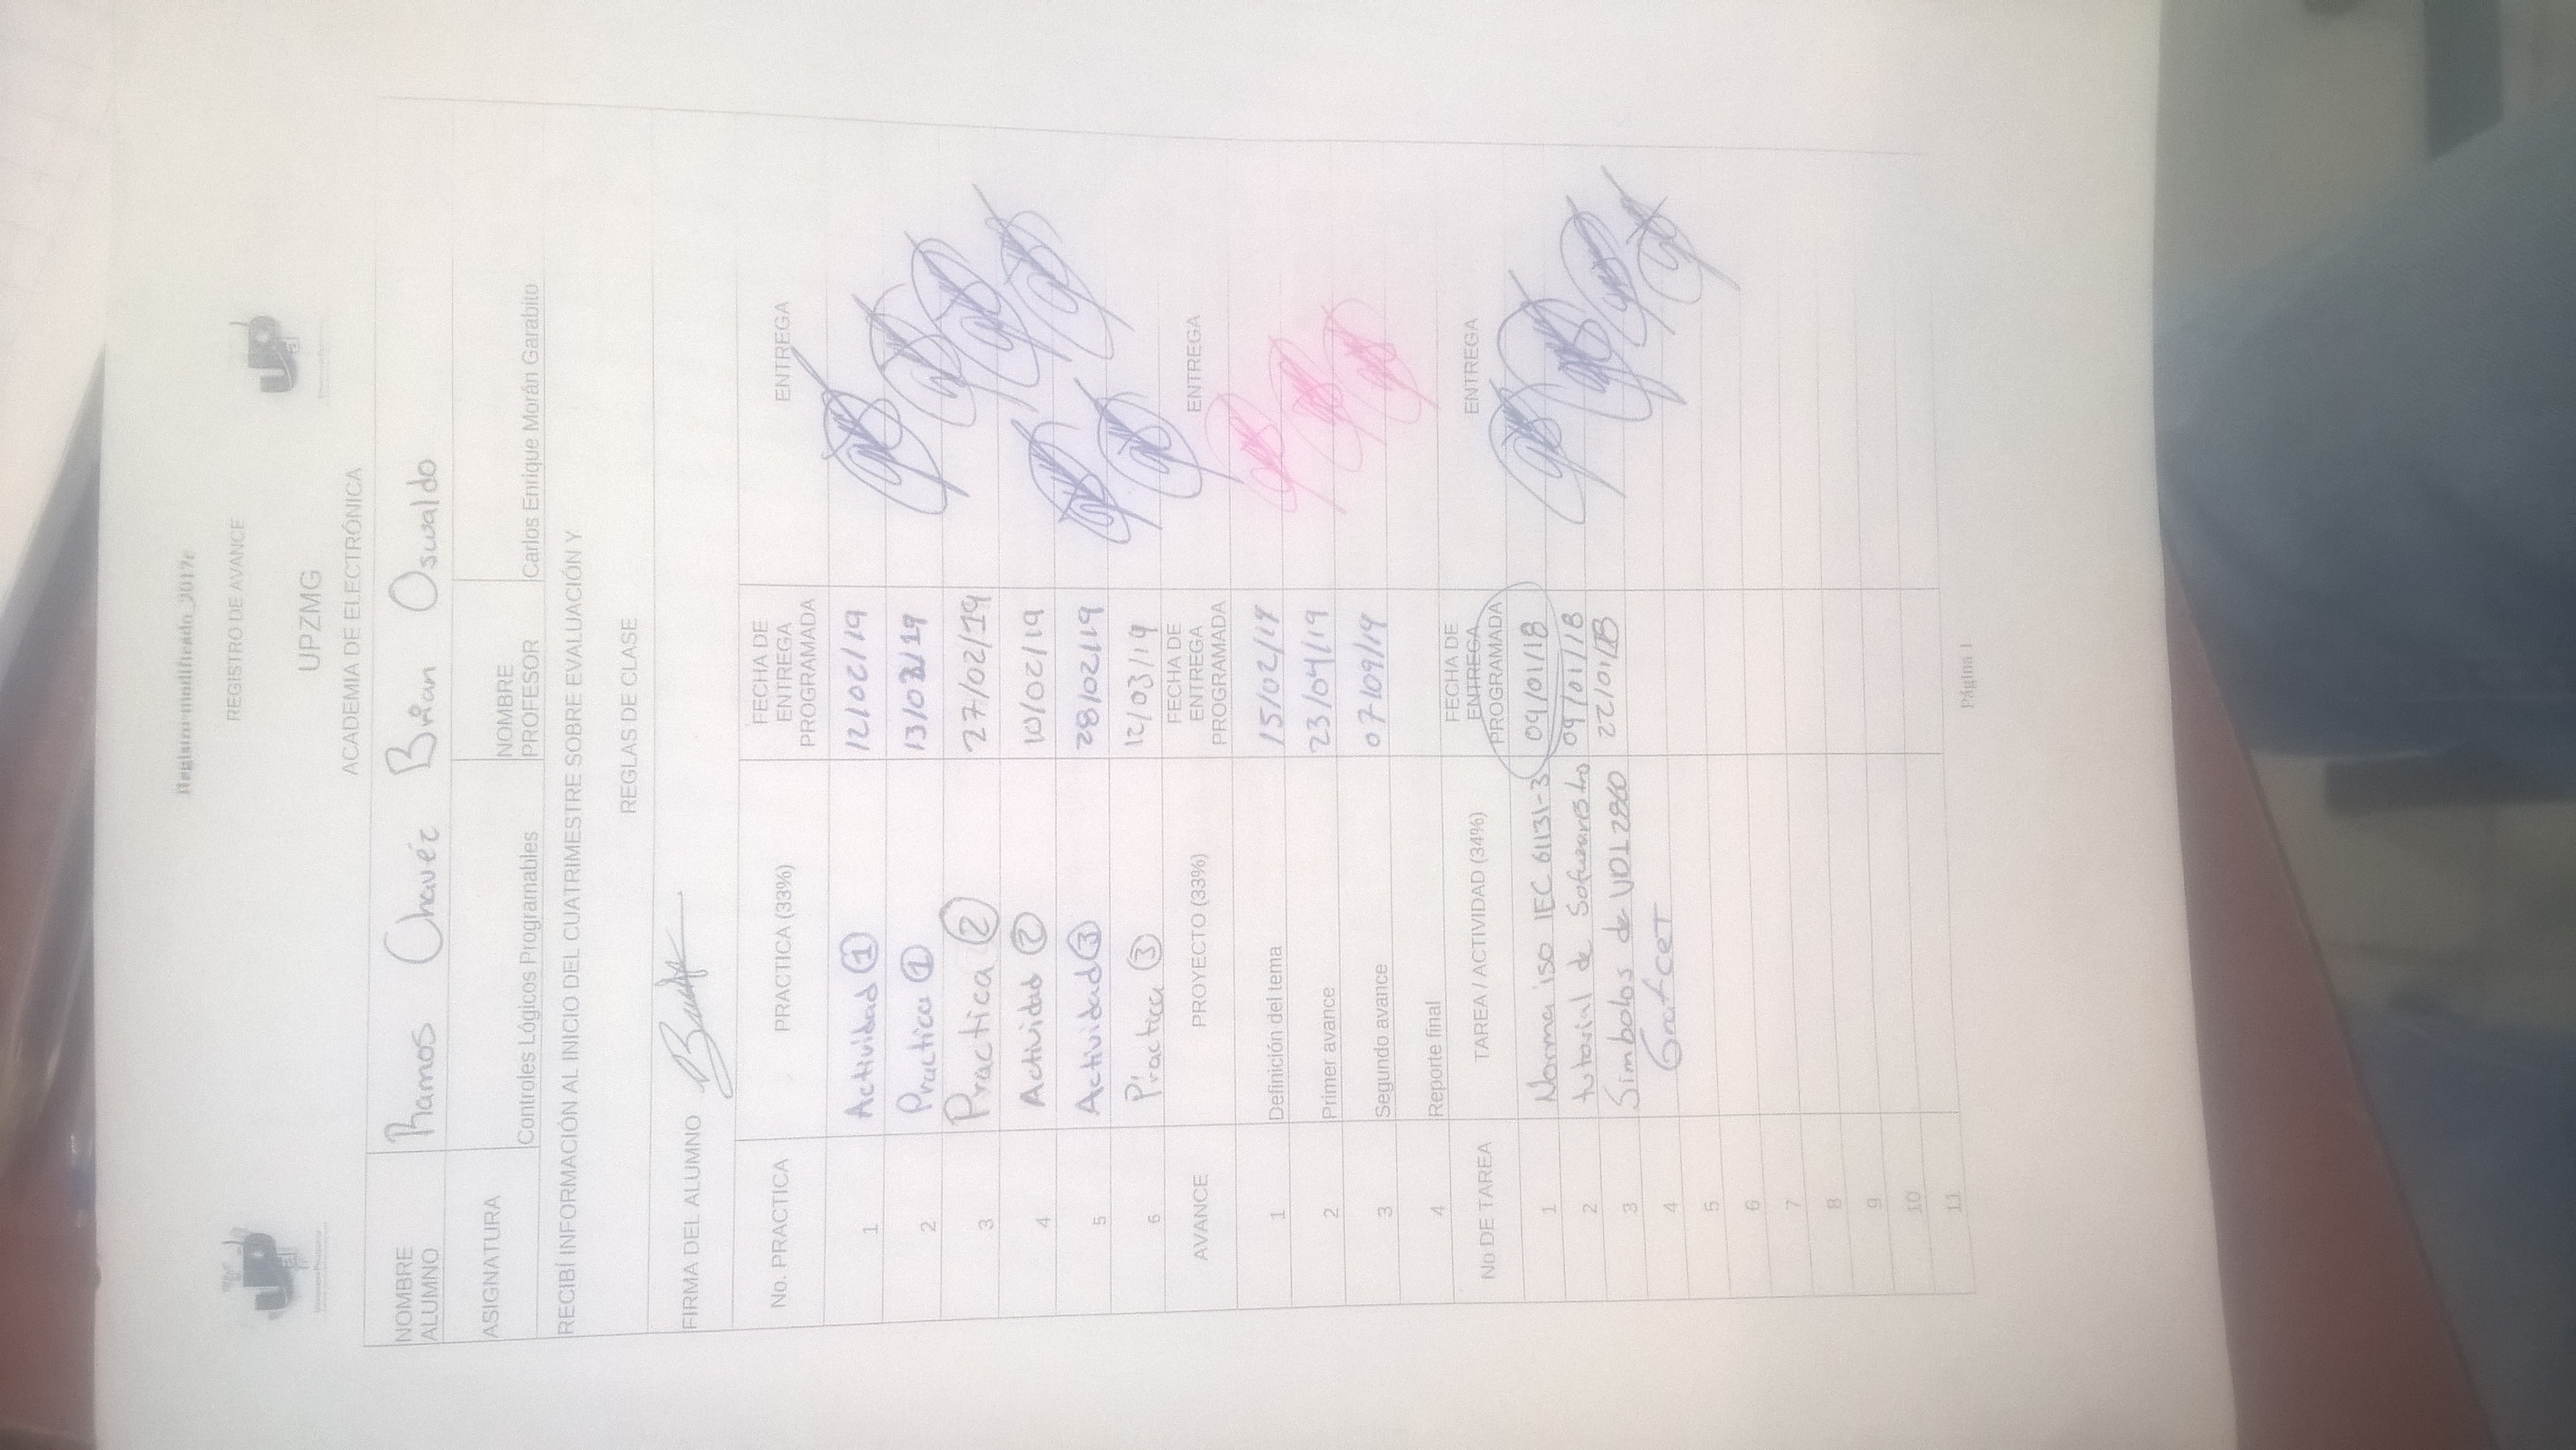 Registro modificado_2017c
REGISTRO DE AVANCE
UPZMG
ACADEMIA DE ELECTRÓNICA
NOMBRE ALUMNO Ramos Chavéz Brian Oswaldo
ASIGNATURA Controles Lógicos Programables NOMBRE PROFESOR Carlos Enrique Morán Garabito
RECIBÍ INFORMACIÓN AL INICIO DEL CUATRIMESTRE SOBRE EVALUACIÓN Y
REGLAS DE CLASE
FIRMA DEL ALUMNO
No. PRACTICA PRACTICA (33%) FECHA DE ENTREGA PROGRAMADA ENTREGA
1 Actividad 1 12/02/19
2 Practica 1 13/02/19
3 Practica 2 27/02/19
4 Actividad 2 10/02/19
5 Actividad 3 28/02/19
6 Practica 3 12/03/19
AVANCE PROYECTO (33%) FECHA DE ENTREGA PROGRAMADA ENTREGA
1 Definición del tema 15/02/19
2 Primer avance 23/04/19
3 Segundo avance 07/09/19
4 Reporte final
No DE TAREA TAREA / ACTIVIDAD (34%) FECHA DE ENTREGA PROGRAMADA ENTREGA
1 Norma iso IEC 61131-3 09/01/18
2 tutorial de 09/01/18
3 Simbolos de 2860 22/01/18
4 Grafcet
5
6
7
8
9
10
11
Página 1